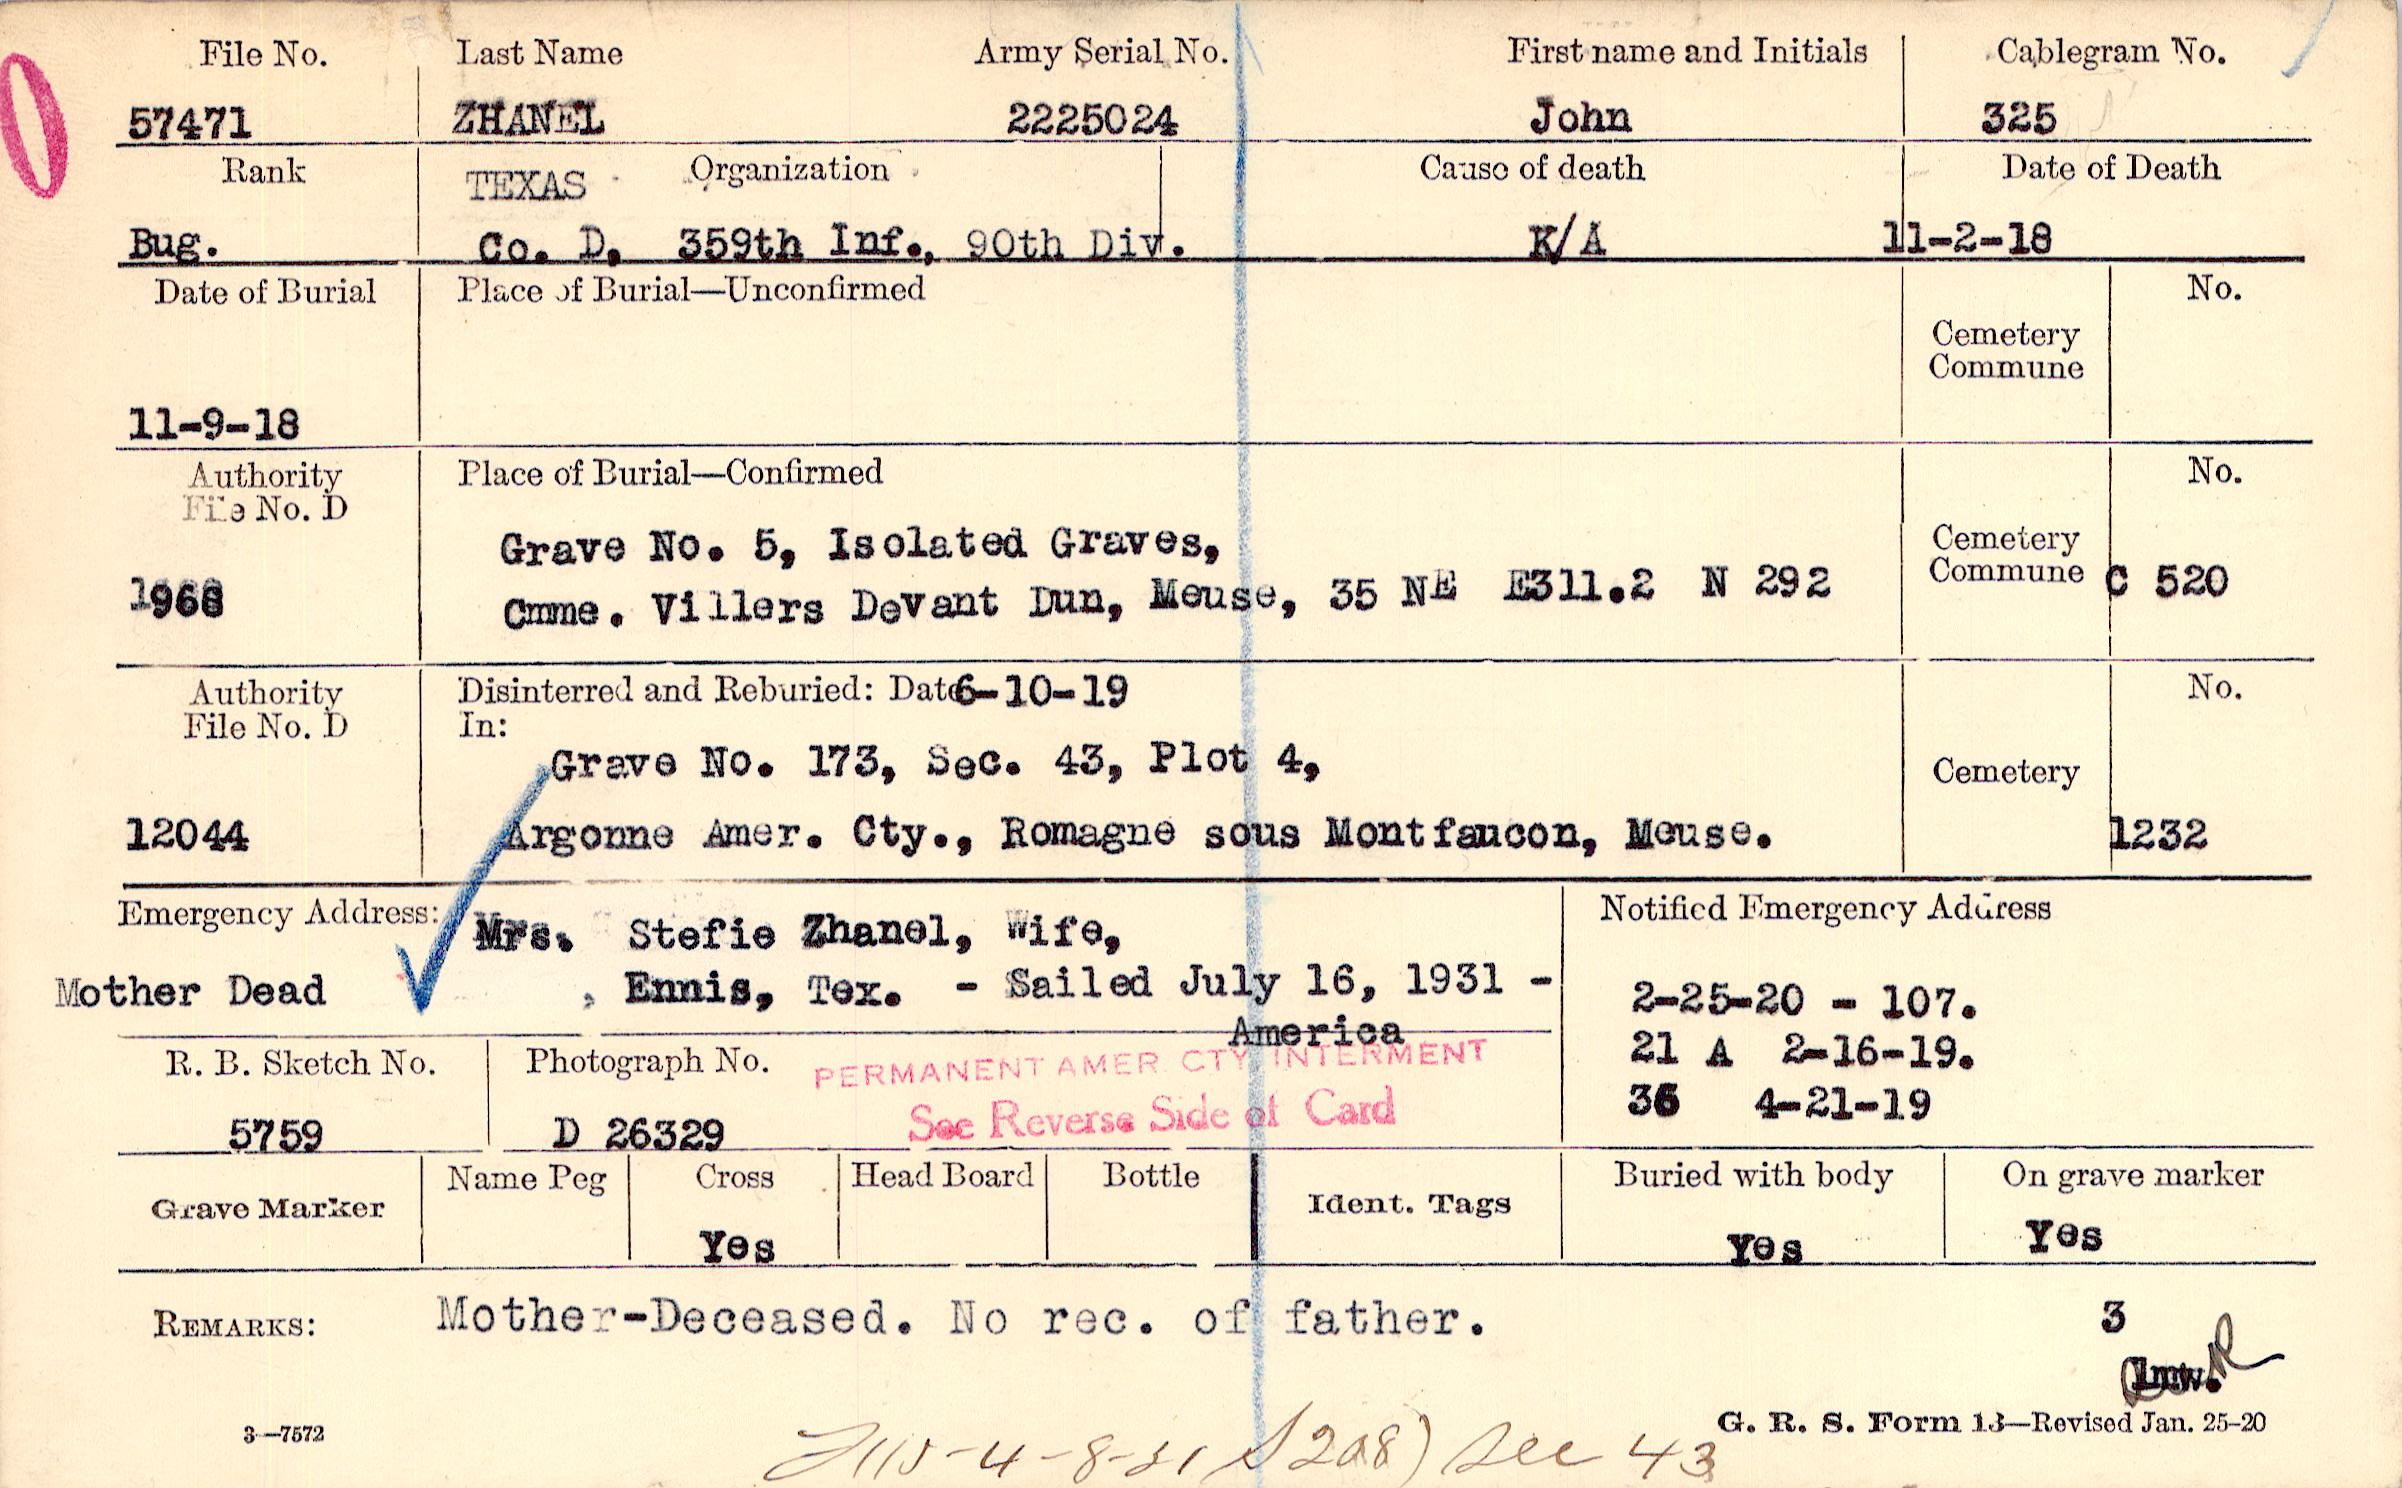 File No. Last Name Army Serial No. First name and Initials Cablegram No.
57471 ZHANEL 2225024 John 325
Rank TEXAS Organization Cause of death Date of Death
Bug. Co. D, 359th Inf., 90th Div. K/A 11-2-18
Date of Burial Place of Burial—Unconfirmed No.
Cemetery
Commune
11-9-18
Authority Place of Burial—Confirmed No.
File No. D
Grave No. 5, Isolated Graves,
Cemetery
1968 Cmme. Villers Devant Dun, Meuse, 35 NE E311.2 N 292 Commune C 520
Authority Disinterred and Reburied: Date 6-10-19 No.
File No. D In:
Grave No. 173, Sec. 43, Plot 4, Cemetery
12044 Argonne Amer. Cty., Romagne sous Montfaucon, Meuse. 1232
Emergency Address: Mrs. Stefie Zhanel, Wife, Notified Emergency Address
Mother Dead , Ennis, Tex. - Sailed July 16, 1931 - 2-25-20 - 107.
America
R. B. Sketch No. Photograph No. PERMANENT AMER CTY INTERMENT 21 A 2-16-19.
See Reverse Side of Card 36 4-21-19
5759 D 26329
Grave Marker Name Peg Cross Head Board Bottle Ident. Tags Buried with body On grave marker
Yes Yes Yes
REMARKS: Mother-Deceased. No rec. of father. 3
lmw.
3—7572 G. R. S. Form 13—Revised Jan. 25-20
See 43